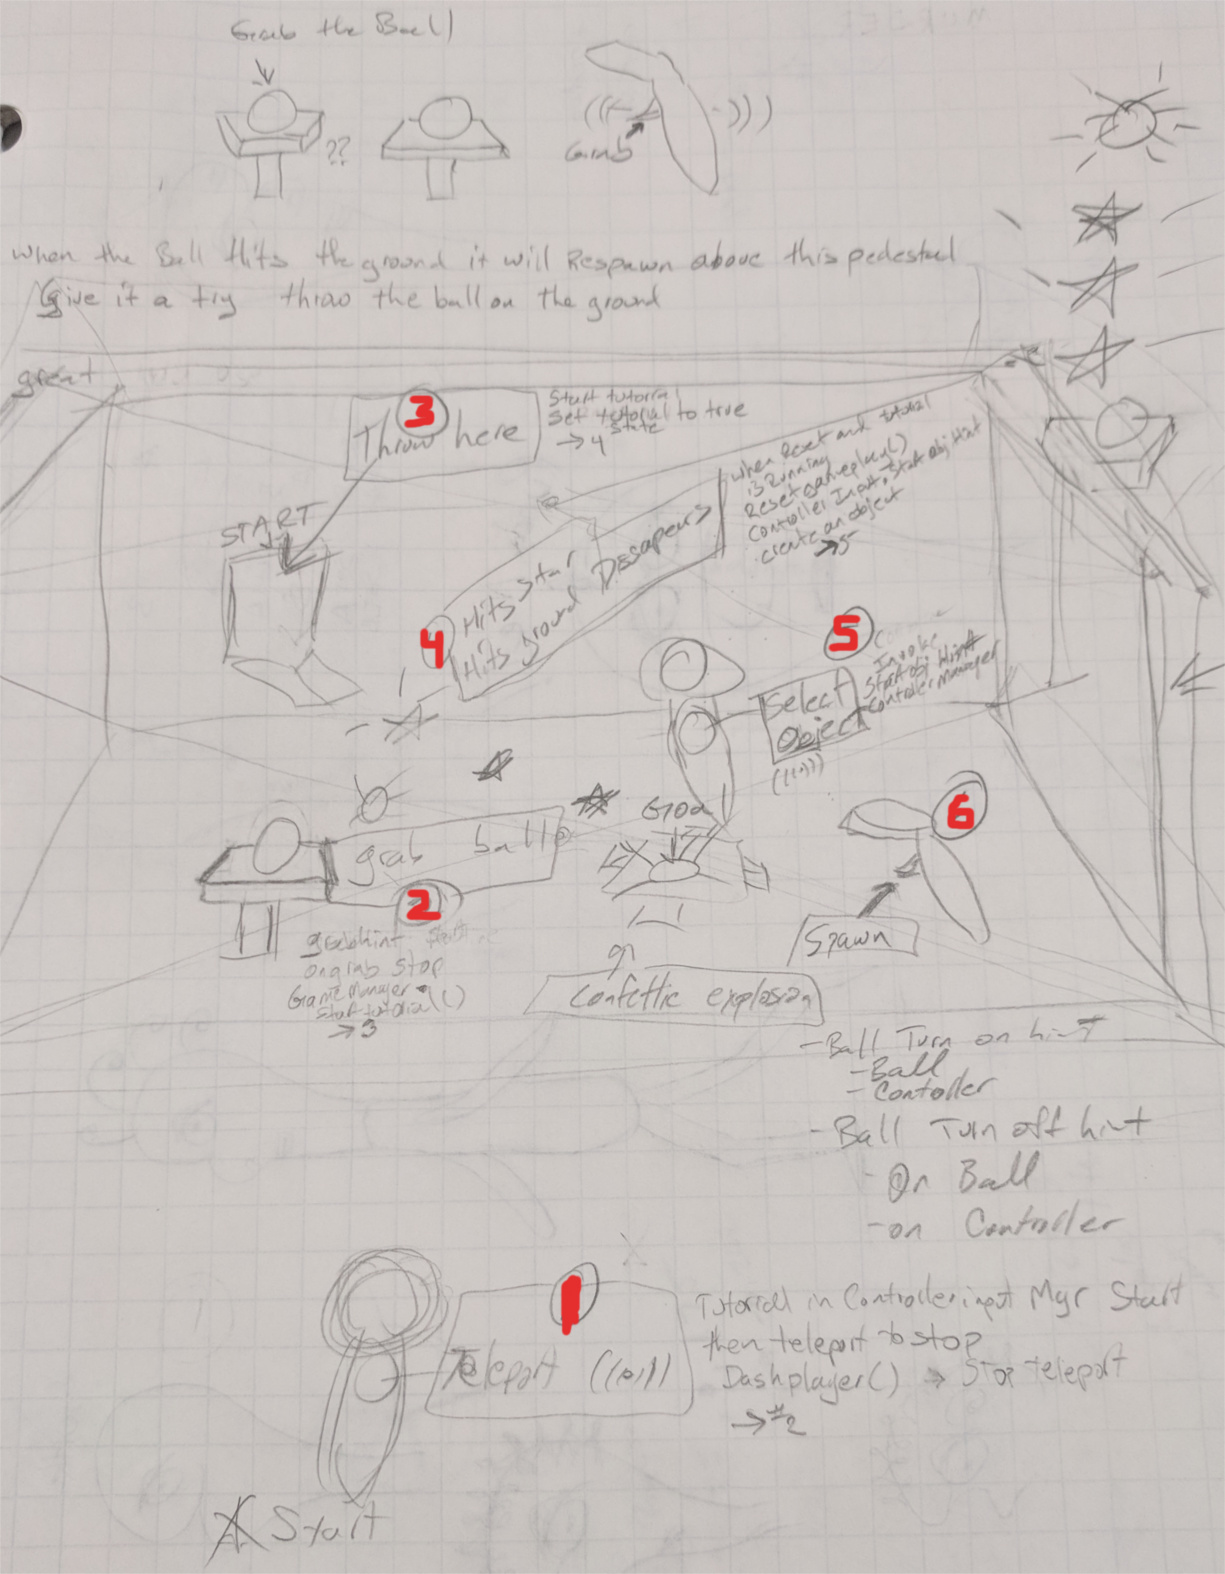 Grab the Ball
??
Grab
when the Ball Hits the ground it will Respawn above this pedestal
Give it a try throw the ball on the ground
great
3
Throw here
Start tutorial
Set tutorial to true
State
→ 4
START
when Reset and tutorial
is Running
Resetgameplay()
Controller Input. Start obj Hint
create an object
→5
4
Hits Star
Hits ground Dissapears
5
Invoke
Start obj Hint
Controler Manager
Select
Object
((()))
grab ball
2
grabhint
ongrab stop
Game Manager.
Start tutorial()
→ 3
Goal
6
Spawn
Confettic explosion
- Ball Turn on hint
- Ball
- Contoller
- Ball Turn off hint
- On Ball
- on Controller
1
Teleport ((o))
Tutoriall in Controller input Mgr Start
then teleport to stop
Dashplayer() → Stop teleport
→ #2
Start